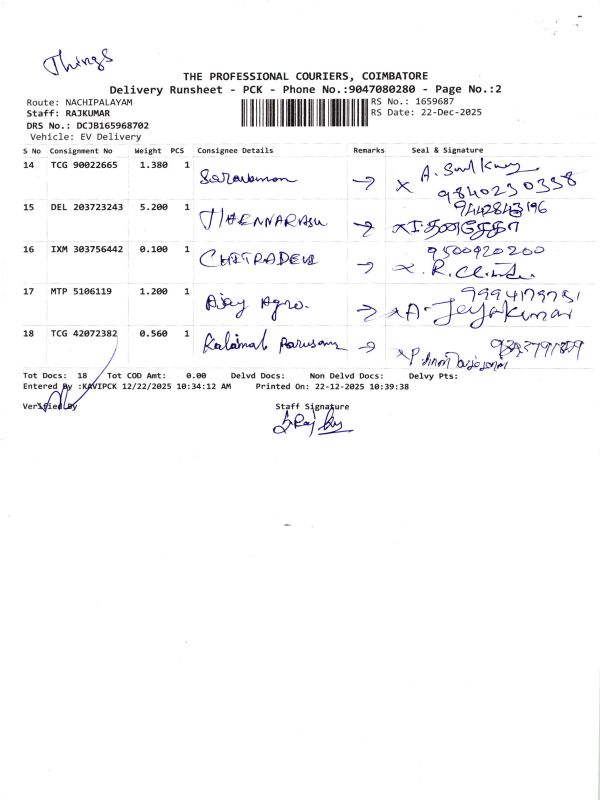 Things
THE PROFESSIONAL COURIERS, COIMBATORE
Delivery Runsheet - PCK - Phone No.:9047080280 - Page No.:2
Route: NACHIPALAYAM RS No.: 1659687
Staff: RAJKUMAR RS Date: 22-Dec-2025
DRS No.: DCJB165968702
Vehicle: EV Delivery
S No Consignment No Weight PCS Consignee Details Remarks Seal & Signature
14 TCG 90022665 1.380 1 Saravanan → x A.
9840230338
15 DEL 203723243 5.200 1 THENNARASU → x
9442843196
16 IXM 303756442 0.100 1 CHITRADEVI → x. R.
9500920200
17 MTP 5106119 1.200 1 Ajay Agro. → x A. Jeyakumar
9994179751
18 TCG 42072382 0.560 1 → x
Tot Docs: 18 Tot COD Amt: 0.00 Delvd Docs: Non Delvd Docs: Delvy Pts:
Entered By :KAVIPCK 12/22/2025 10:34:12 AM Printed On: 22-12-2025 10:39:38
Verified By Staff Signature